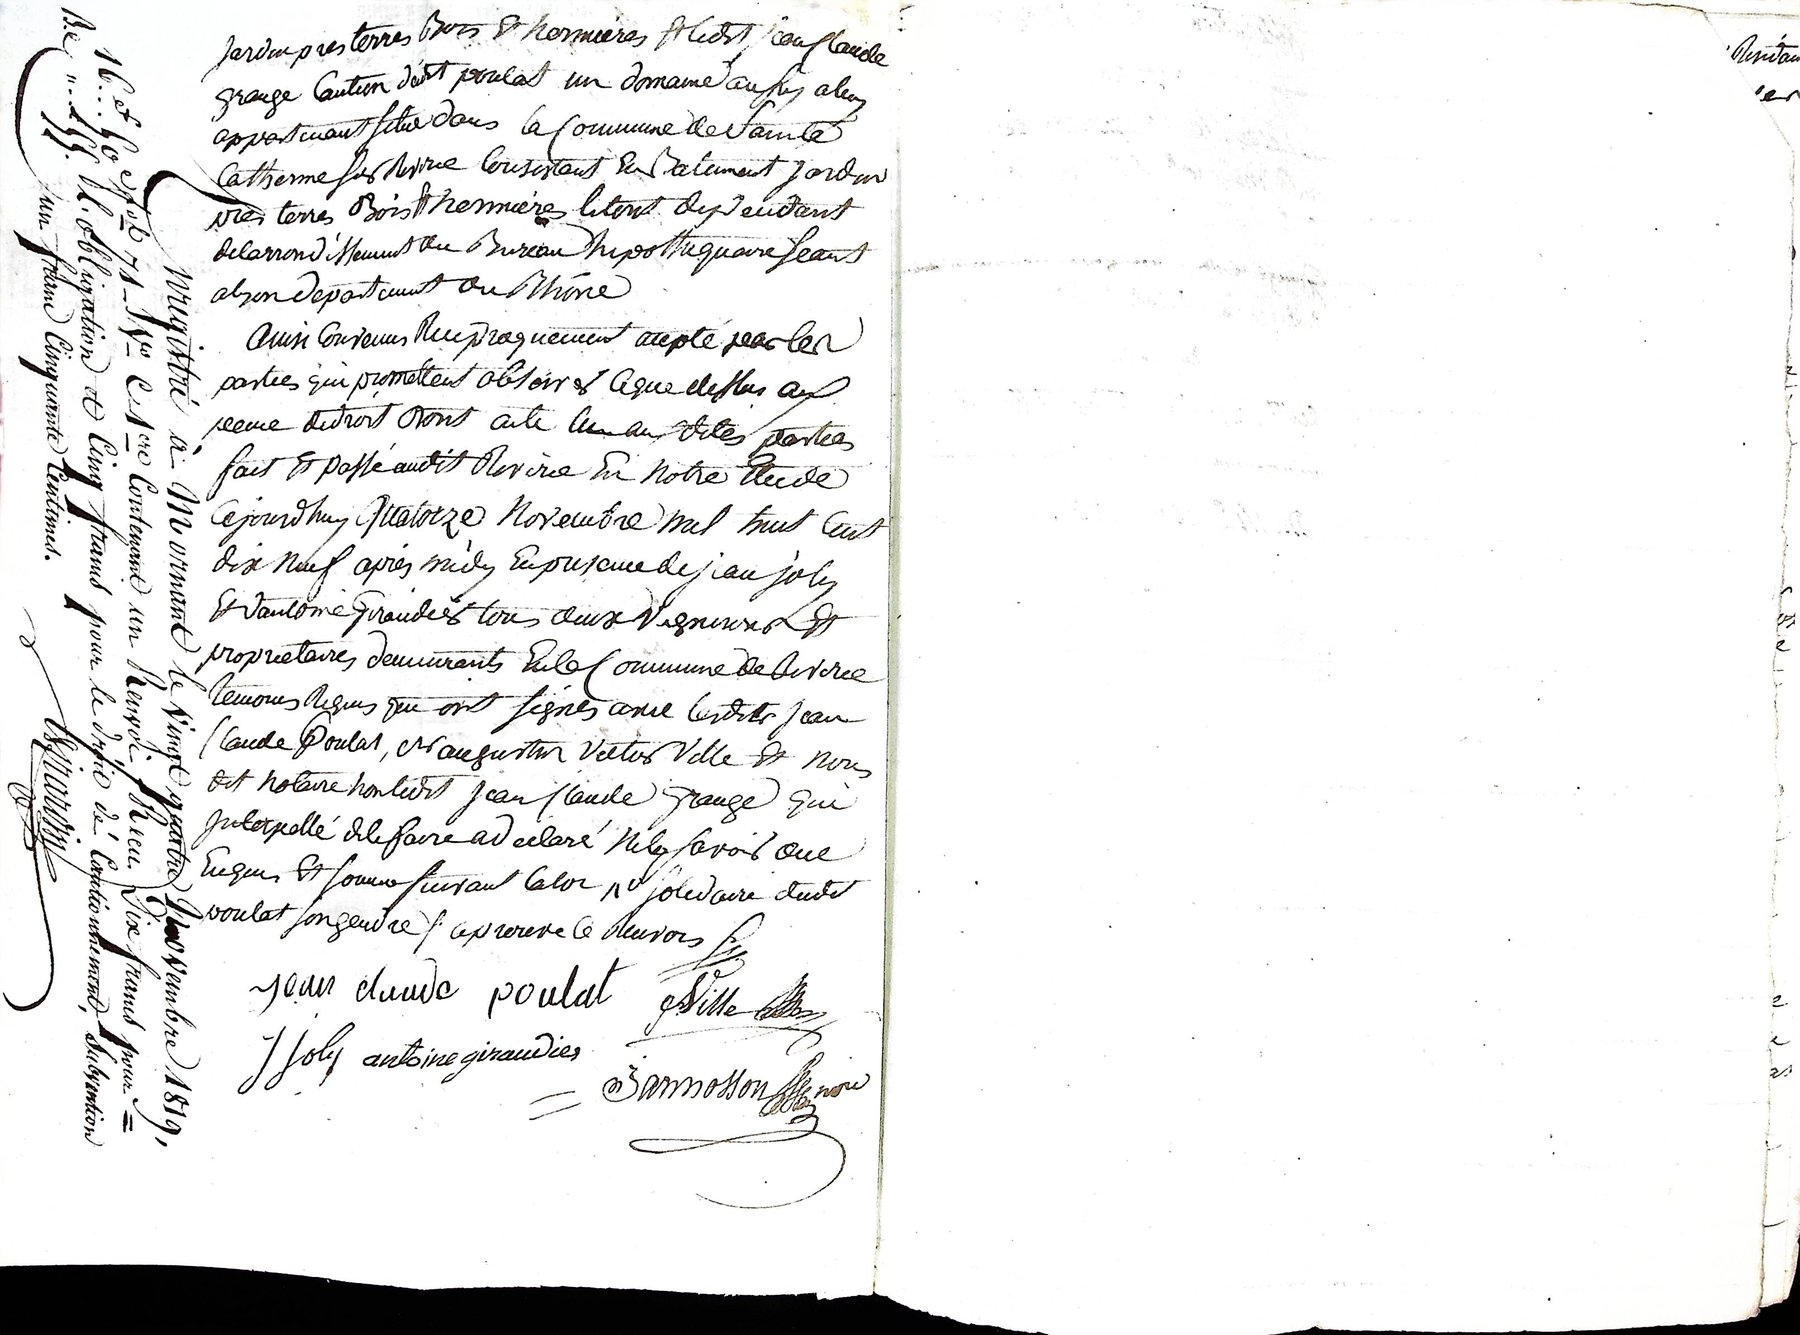 Jardin pres terres Bois Et hermières Et ledit jean Claude
grange Caution dudit poulat un domaine aussy aluy
appartenant situé dans la Commune de Sainte
Catherine sur Riverie Consistant En Batiment Jardin
pres terres Bois Et hermières le tout dependant
delarrondissement du Bureau hipothequaire séant
alyon departement du Rhône
Ainsi Convenus Reciproquement accepté par les
parties qui promettent observer Ceque dessus aux
peine de droit Dont acte lu aux dites parties
fait Et passé audit Riverie En notre Etude
Cejourdhuy Quatorze Novembre mil huit Cent
dix neuf après midy En presence de jean joly
Et d'antoine Giraudier tous deux Vignerons Et
propriétaires demeurants En la Commune de Riverie
temoins Requis qui ont signés avec lesdits Jean
Claude Poulat, et augustin Victor Ville Et nous
dit notaire non ledit Jean Claude grange qui
Interpellé dele faire a déclaré nele savoir due
Enquis Et sommé suivant la loi solidaire dudit
poulat son gendre approuvé le Renvois
Jean claude poulat Ville
J Joly antoine giraudier
Jarnosson nore
Enregistré à Mornant le vingt quatre Novembre 1819,
f° 71 V° C 1ere Contenant un Renvoi, Reçu Dix francs pour =
l'obligation et Cinq francs pour le droit de Cautionnement, Subvention
un franc Cinquante Centimes.